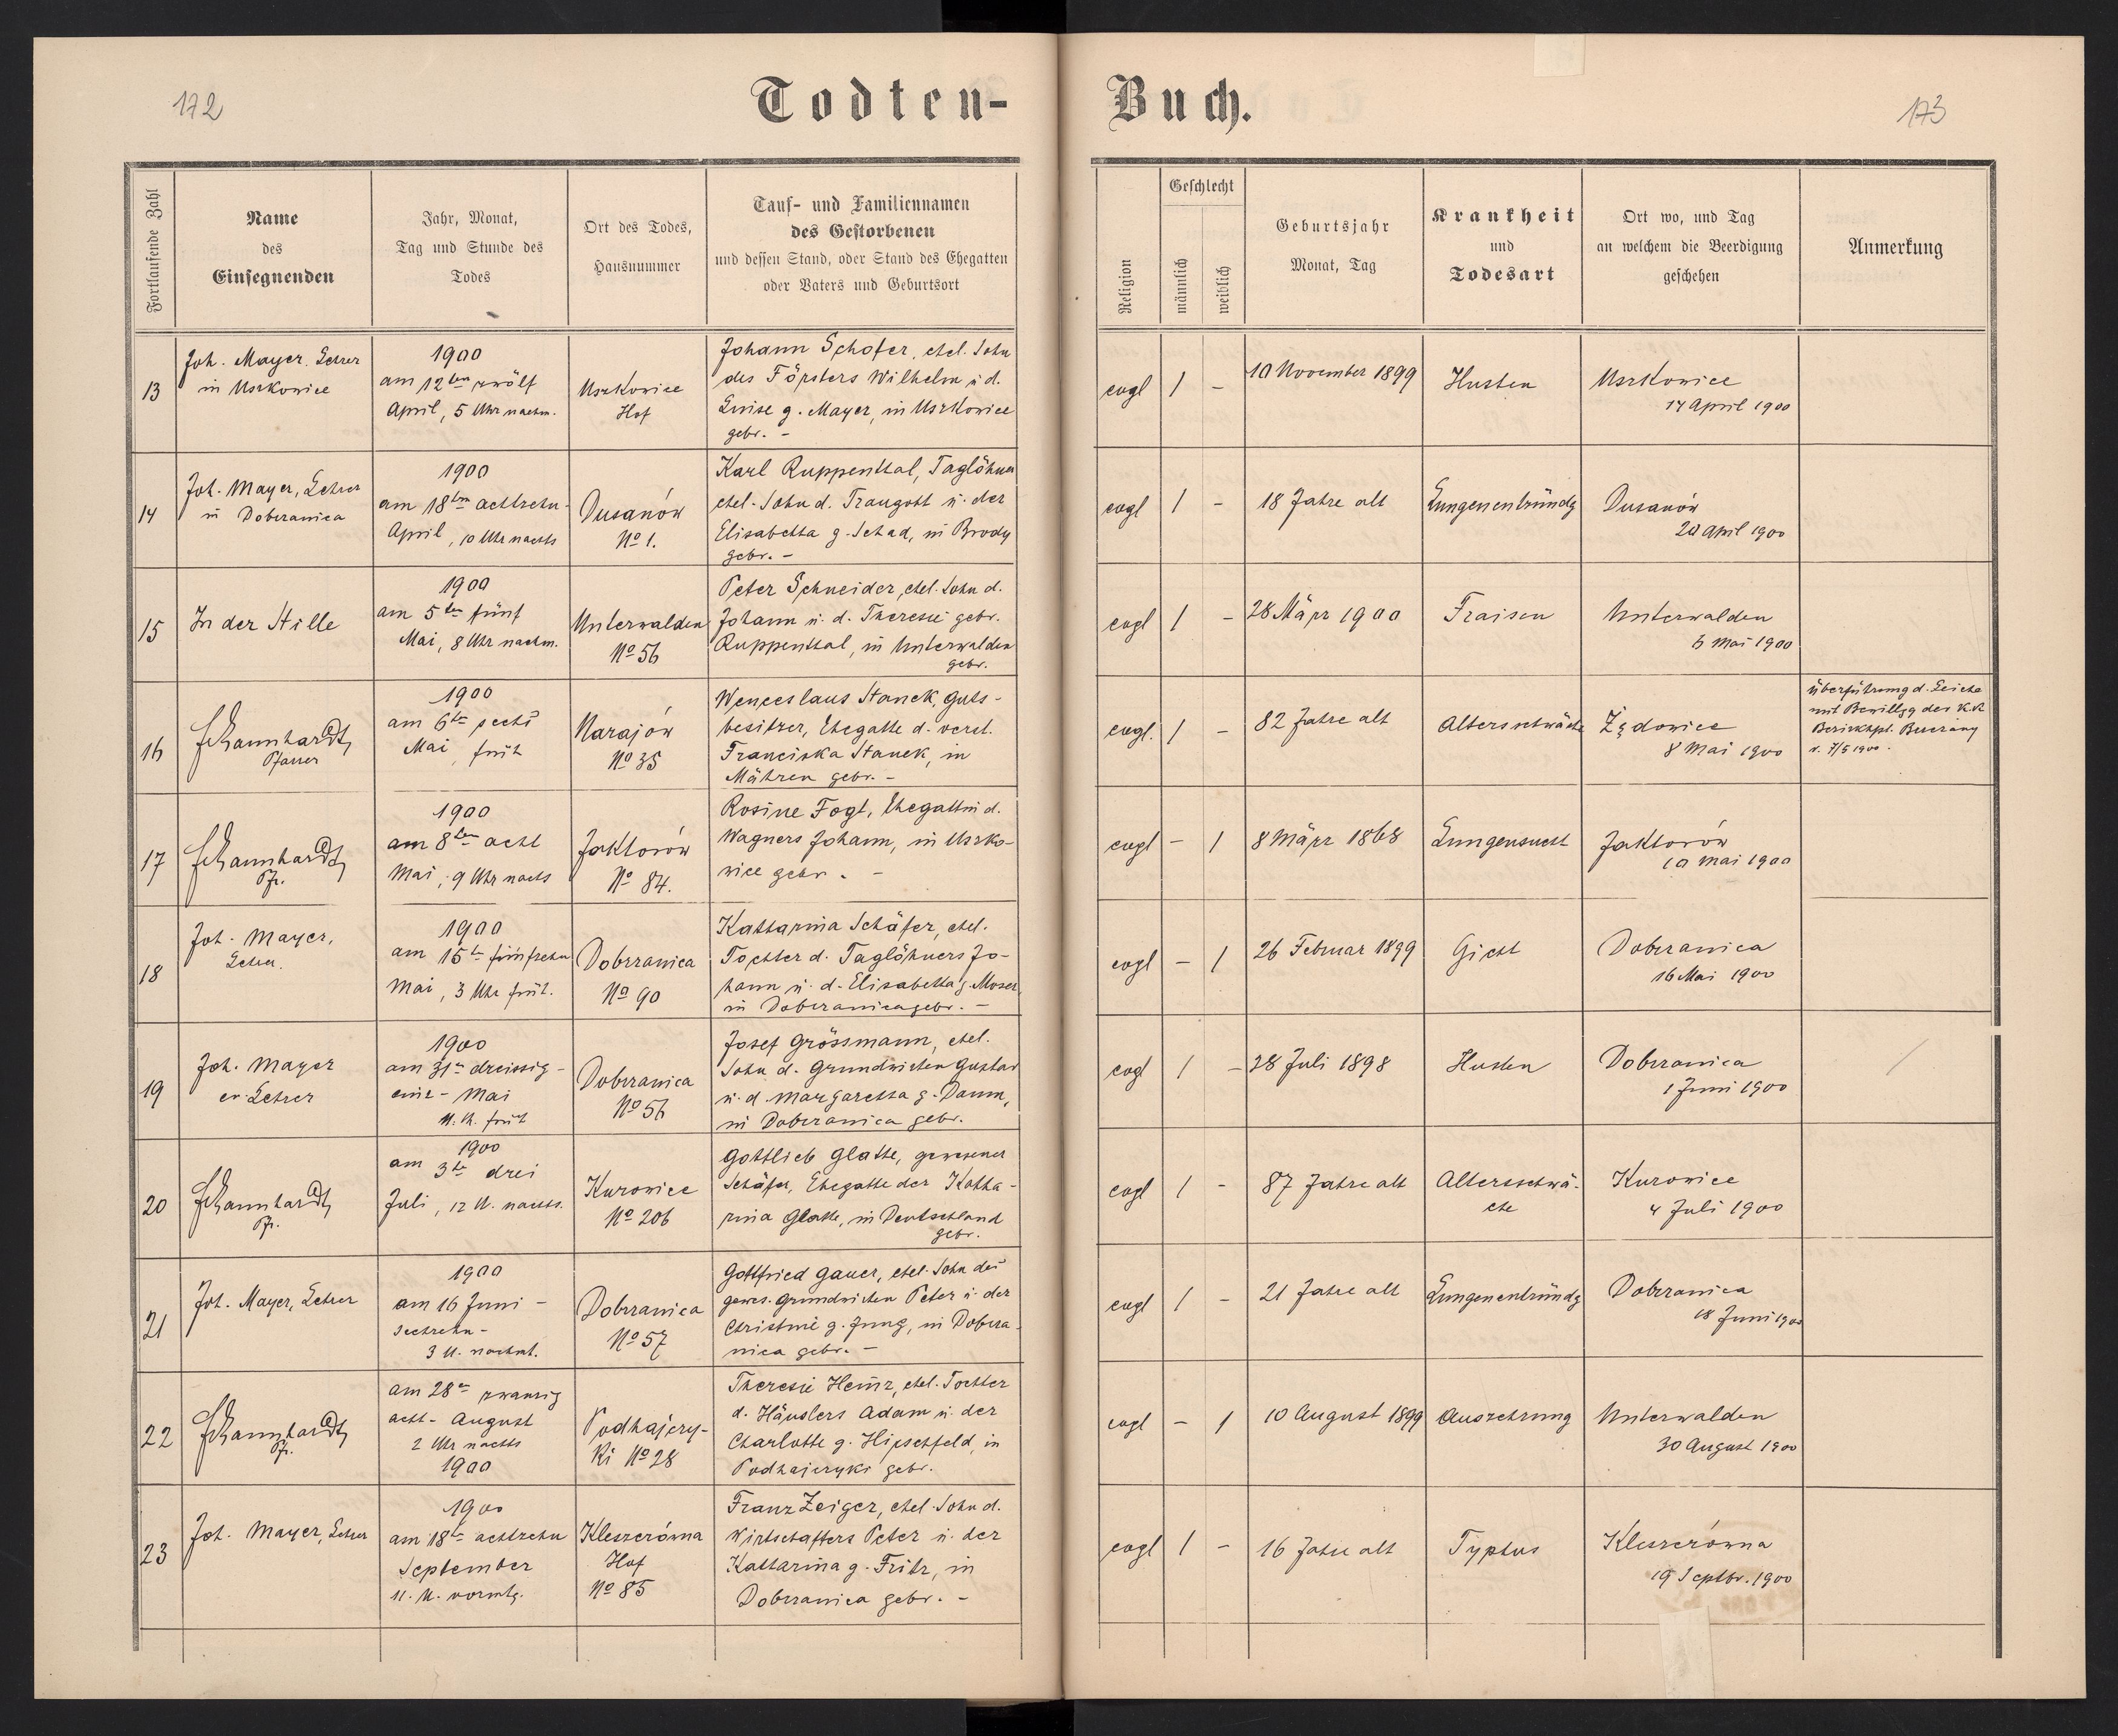 172
Todten-
Buch.
173
Fortlaufende Zahl
Name
des
Einsegnenden
Jahr, Monat,
Tag und Stunde des
Todes
Ort des Todes,
Hausnummer
Tauf- und Familiennamen
des Gestorbenen
und dessen Stand, oder Stand des Ehegatten
oder Vaters und Geburtsort
Religion
Geschlecht
männlich
weiblich
Geburtsjahr
Monat, Tag
Krankheit
und
Todesart
Ort wo, und Tag
an welchem die Beerdigung
geschehen
Anmerkung
13
Joh. Mayer. Lehrer
in Uszkowice
1900
am 12ten zwölf
April, 5 Uhr nachm.
Uszkowice
Hof
Johann Schofer, ehel. Sohn
des Försters Wilhelm u. d.
Luise g. Mayer, in Uszkowice
gebr. -
evgl
1
-
10 November 1899
Husten
Uszkowice
14 April 1900
14
Joh. Mayer, Lehrer
in Dobrzanica
1900
am 18ten achtzehn-
April, 10 Uhr nachts
Dusanów
No 1.
Karl Ruppenthal, Taglöhner
ehel. Sohn d. Traugott u. der
Elisabetha g. Schad, in Brody
gebr. -
evgl
1
-
18 Jahre alt
Lungenentzündg
Dusanów
20 April 1900
15
In der Stille
1900
am 5ten fünf
Mai, 8 Uhr nachm.
Unterwalden
No 56
Peter Schneider, ehel. Sohn d.
Johann u. d. Theresie gebr.
Ruppenthal, in Unterwalden
gebr.
evgl
1
-
28 März 1900
Fraisen
Unterwalden
6 Mai 1900
16
Pfarrer
1900
am 6te sechs
Mai, früh
Narajów
No 35
Wenceslaus Stanek, Guts-
besitzer, Ehegatte d. verst.
Franciska Stanek, in
Mähren gebr. -
evgl.
1
-
82 Jahre alt
Altersschwäche
Żędowice
8 Mai 1900
Überführung d. Leiche
mit Bewillgg der k.k.
v. 7/5 1900.
17
Pfr.
1900
am 8ten acht
Mai, 9 Uhr nachts
Jaktorów
No 84.
Rosine Fogt, Ehegattin d.
Wagners Johann, in Uszko-
wice gebr. -
evgl
-
1
8 März 1868
Lungensucht
Jaktorów
10 Mai 1900
18
Joh. Mayer,
Lehrer.
1900
am 15te fünfzehn
Mai, 3 Uhr früh.
Dobrzanica
No 90
Katharina Schäfer, ehel.
Tochter d. Taglöhners Jo-
hann u. d. Elisabetha g. Moser,
in Dobrzanica gebr. -
evgl
-
1
26 Februar 1899
Gicht
Dobrzanica
16 Mai 1900
19
Joh. Mayer
ev. Lehrer
1900
am 31te dreissig-
eine - Mai
11. U. früh
Dobrzanica
No 56
Josef Grössmann, ehel.
Sohn d. Grundwirten Gustav
u. d. Margaretha g. Daum,
in Dobrzanica gebr.
evgl
1
-
28 Juli 1898
Husten
Dobrzanica
1 Juni 1900
20
Pfr.
1900
am 3te drei
Juli, 12 U. nachts.
Kurowice
No 206
Gottlieb Glatte, gewesener
Schäfer, Ehegatte der Katha-
rina Glatte, in Deutschland
gebr.
evgl
1
-
87 Jahre alt
Altersschwä-
che
Kurowice
4 Juli 1900
21
Joh. Mayer, Lehrer
1900
am 16 Juni -
sechzehn -
3 U. nachmt.
Dobrzanica
No 57
Gottfried Gauer, ehel. Sohn des
gewes. Grundwirten Peter u. der
Christine g. Jung, in Dobrza-
nica gebr. -
evgl
1
-
21 Jahre alt
Lungenentzündg
Dobrzanica
18 Juni 1900
22
Pfr.
am 28te zwanzig
acht - August
2 Uhr nachts
1900
Podhajczy-
ki No 28
Theresie Heinz, ehel. Tochter
d. Häuslers Adam u. der
Charlotte g. Hirschfeld, in
Podhajczyki gebr.
evgl
-
1
10 August 1899
Auszehrung
Unterwalden
30 August 1900
23
Joh. Mayer, Lehrer
1900
am 18te achtzehn
September
11. U. vormtg.
Kleszczówna
Hof
No 85
Franz Zeiger, ehel. Sohn d.
Wirtschafters Peter u. der
Katharina g. Fritz, in
Dobrzanica gebr. -
evgl
1
-
16 Jahre alt
Typhus
Kleszczówna
19 Septbr. 1900